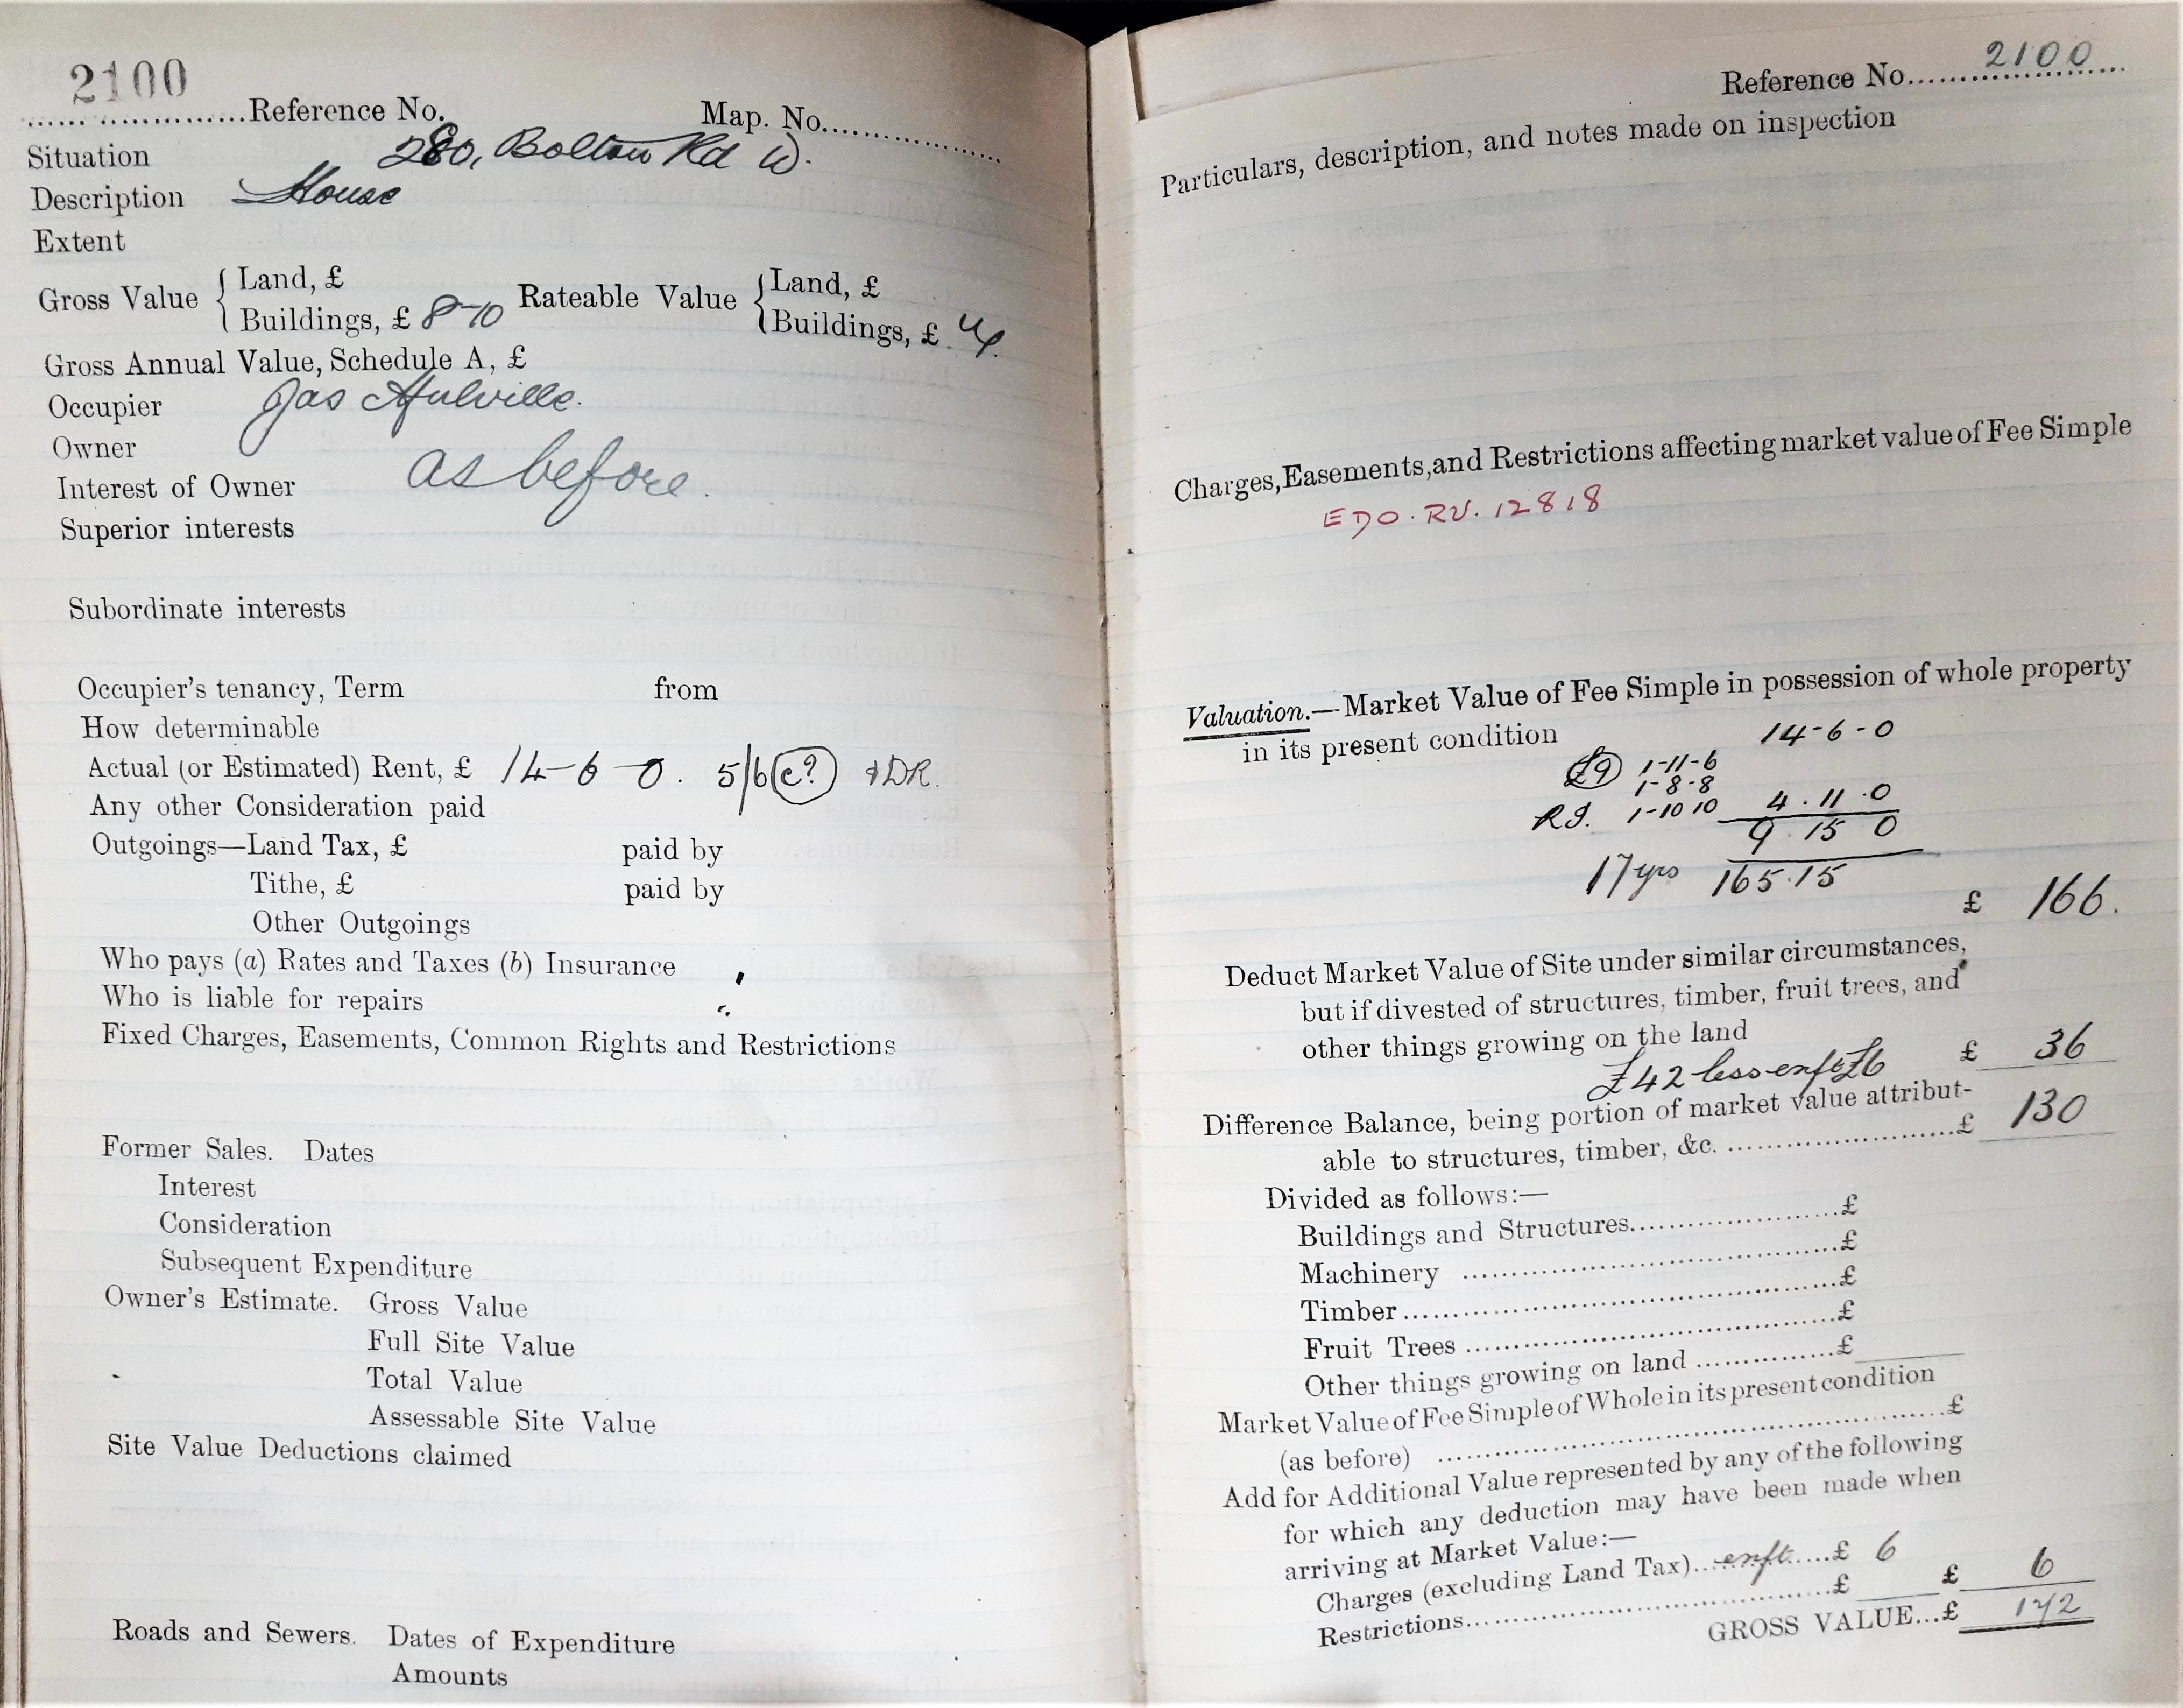 2100
Reference No. Map. No.
Situation 280, Bolton Rd W.
Description House
Extent
Gross Value { Land, £ Rateable Value { Land, £
Buildings, £ 8-10 Buildings, £
Gross Annual Value, Schedule A, £
Occupier Jas
Owner
Interest of Owner as before.
Superior interests
Subordinate interests
Occupier's tenancy, Term from
How determinable
Actual (or Estimated) Rent, £ 14-6-0. 5/6 (c?) &DR.
Any other Consideration paid
Outgoings—Land Tax, £ paid by
Tithe, £ paid by
Other Outgoings
Who pays (a) Rates and Taxes (b) Insurance
Who is liable for repairs
Fixed Charges, Easements, Common Rights and Restrictions
Former Sales. Dates
Interest
Consideration
Subsequent Expenditure
Owner's Estimate. Gross Value
Full Site Value
Total Value
Assessable Site Value
Site Value Deductions claimed
Roads and Sewers. Dates of Expenditure
Amounts
Reference No. 2100
Particulars, description, and notes made on inspection
Charges, Easements, and Restrictions affecting market value of Fee Simple
EDO. RV. 12818
Valuation.—Market Value of Fee Simple in possession of whole property
in its present condition 14-6-0
£9 1-11-6
1-8-8
R.I. 1-10 10 4.11.0
9 15 0
17 yrs 165.15
£ 166.
Deduct Market Value of Site under similar circumstances,
but if divested of structures, timber, fruit trees, and
other things growing on the land
£42 less enft £6 £ 36
Difference Balance, being portion of market value attribut-
able to structures, timber, &c. £ 130
Divided as follows:—
Buildings and Structures £
Machinery £
Timber £
Fruit Trees £
Other things growing on land £
Market Value of Fee Simple of Whole in its present condition
(as before) £
Add for Additional Value represented by any of the following
for which any deduction may have been made when
arriving at Market Value:—
Charges (excluding Land Tax) enft £ 6
Restrictions £ £ 6
GROSS VALUE...£ 172